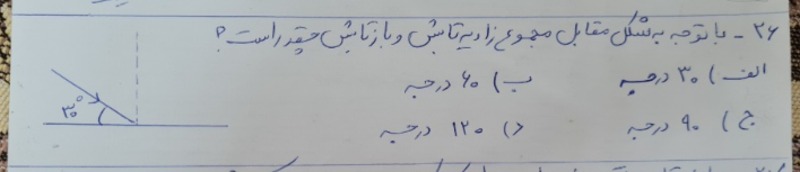 ۲۶ - با توجه به شکل مقابل مجموع زاویه تابش و بازتابش چقدر است؟
الف) ۳۰ درجه ب) ۶۰ درجه
ج) ۹۰ درجه د) ۱۲۰ درجه
۳۰°